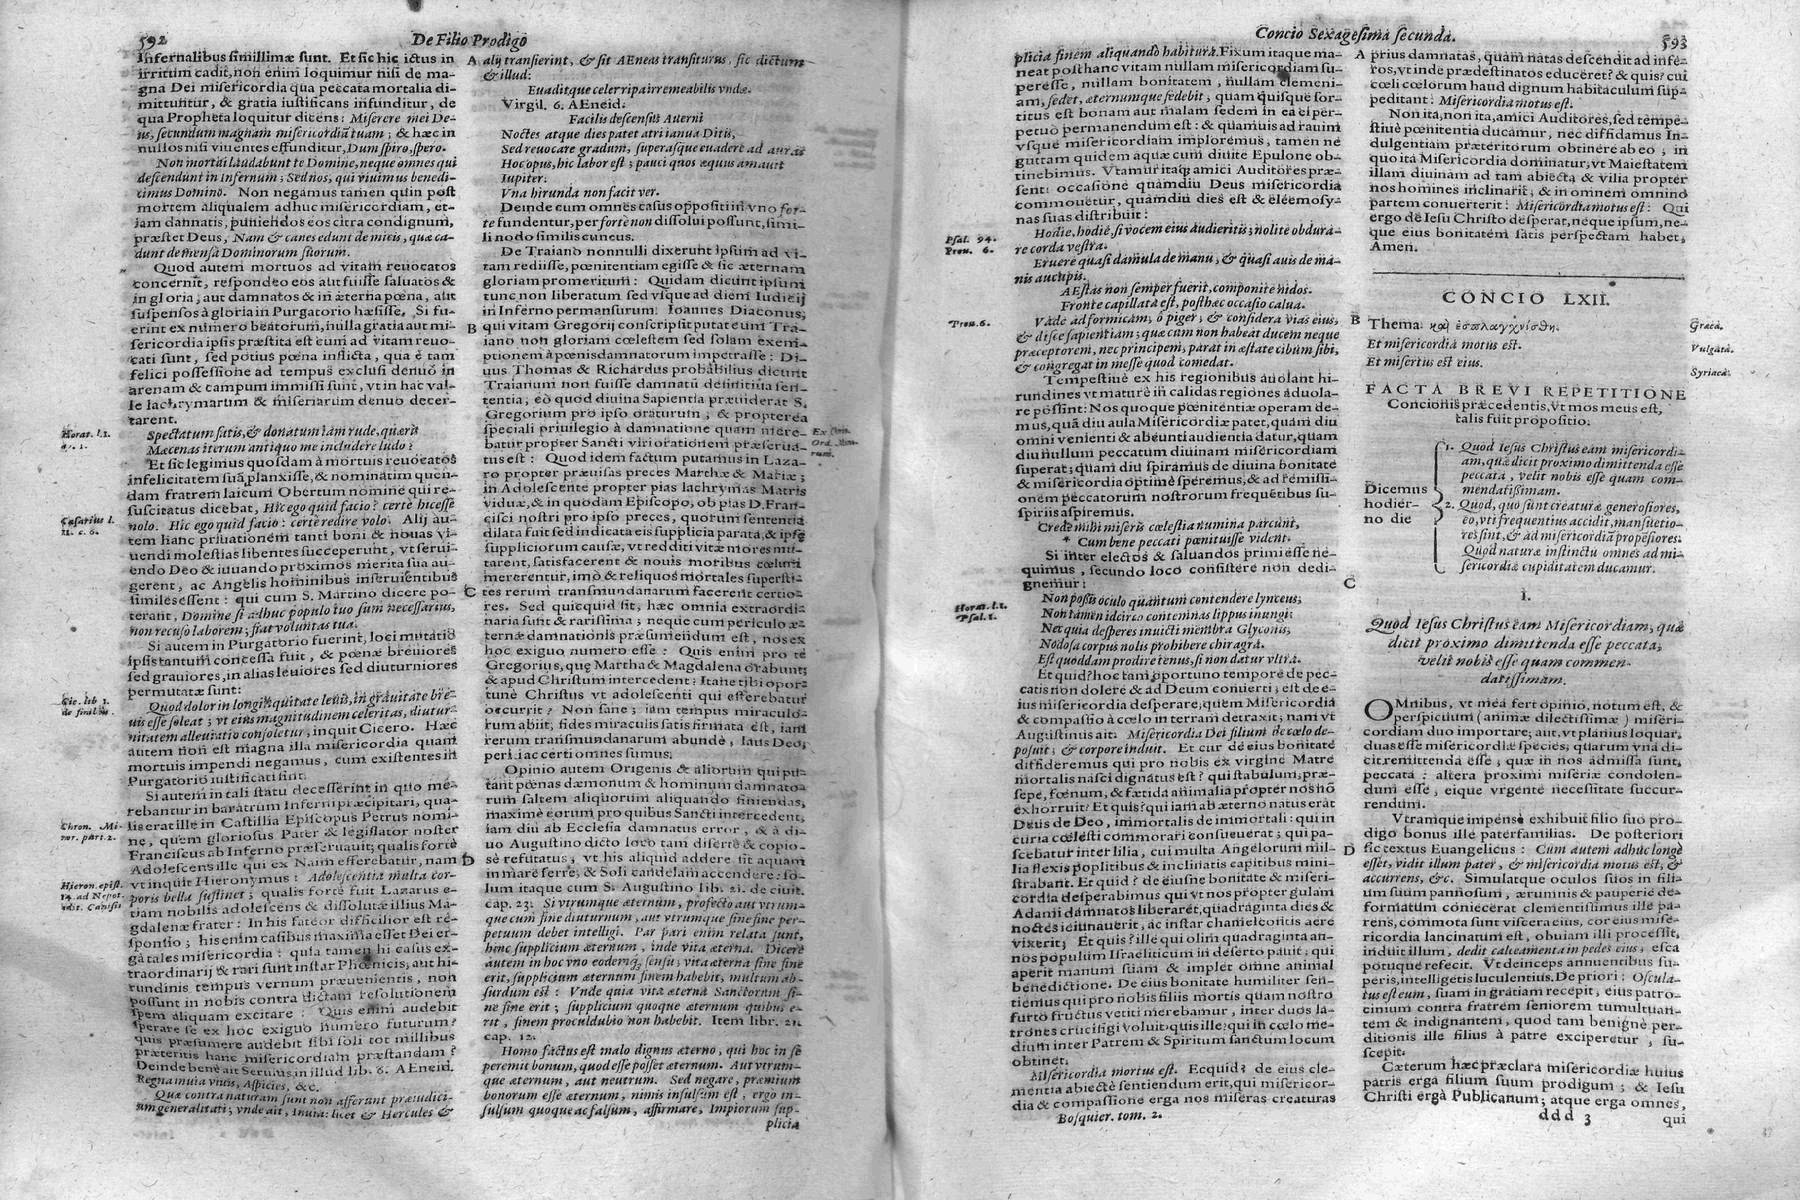 592
De Filio Prodigo
Infernalibus simillimæ sunt. Et sic hic ictus in
irritum cadit, non enim loquimur nisi de ma-
gna Dei misericordia qua peccata mortalia di-
mittuntur, & gratia iustificans infunditur, de
qua Propheta loquitur dicens: Miserere mei De-
us, secundum magnam misericordiã tuam; & hæc in
nullos nisi viuentes effunditur, Dum spiro, spero.
Non mortui laudabunt te Domine, neque omnes qui
descendunt in Infernum; Sed nos, qui viuimus benedi-
cimus Domino. Non negamus tamen quin post
mortem aliqualem adhuc misericordiam, et-
iam damnatis, puniendos eos citra condignum,
præstet Deus, Nam & canes edunt de micis, quæ ca-
dunt de mensa Dominorum suorum.
Quod autem mortuos ad vitam reuocatos
concernit, respondeo eos aut fuisse saluatos &
in gloria; aut damnatos & in æterna pœna, aut
suspensos à gloria in Purgatorio hæsisse. Si fu-
erint ex numero beatorum, nulla gratia aut mi-
sericordia ipsis præstita est cum ad vitam reuo-
cati sunt, sed potius pœna inflicta, qua è tam
felici possessione ad tempus exclusi denuò in
arenam & campum immissi sunt, vt in hac val-
le lachrymarum & miseriarum denuo decer-
tarent.
Horat. l.1.
ep. 1.
Spectatum satis, & donatum iam rude, quæris
Mæcenas iterum antiquo me includere ludo?
Et sic legimus quosdam à mortuis reuocatos
infelicitatem suã planxisse, & nominatim quen-
dam fratrem laicum Obertum nomine qui re-
suscitatus dicebat, Hic ego quid facio? certè hic esse
Cæsarius l.
11. c. 6.
nolo. Hic ego quid facio: certè redire volo. Alij au-
tem hanc priuationem tanti boni & nouas vi-
uendi molestias libentes succeperunt, vt serui-
endo Deo & iuuando proximos merita sua au-
gerent, ac Angelis hominibus inseruientibus
similes essent: qui cum S. Martino dicere po-
terant, Domine si adhuc populo tuo sum necessarius,
non recuso laborem; fiat voluntas tua.
Si autem in Purgatorio fuerint, loci mutatio
ipsis tantum concessa fuit, & pœnæ breuiores
sed grauiores, in alias leuiores sed diuturniores
permutatæ sunt:
Cic. lib 1.
de finibus.
Quod dolor in longinquitate leuis, in grauitate bre-
uis esse soleat; vt eius magnitudinem celeritas, diutur-
nitatem alleuiatio consoletur, inquit Cicero. Hæc
autem non est magna illa misericordia quam
mortuis impendi negamus, cum existentes in
Purgatorio iustificati sint.
Si autem in tali statu decesserint in quo me-
rebantur in baratrum Inferni præcipitari, qua-
Chron. Mi-
nor. part. 2.
lis erat ille in Castillia Episcopus Petrus nomi-
ne, quem gloriosus Pater & legislator noster
Franciscus ab Inferno præseruauit; qualis fortè
Adolescens ille qui ex Naim efferebatur, nam
vt inquit Hieronymus: Adolescentia multa cor-
Hieron. epist.
14. ad Nepot.
edit. Canisij
poris bella sustinet; qualis fortè fuit Lazarus e-
tiam nobilis adolescens & dissolutæ illius Ma-
gdalenæ frater: In his fateor difficilior est re-
sponsio; his enim casibus maxima esset Dei er-
ga tales misericordia: quia tamen hi casus ex-
traordinarij & rari sunt instar Phœnicis, aut hi-
rundinis tempus vernum præuenientis, non
possunt in nobis contra dictam resolutionem
spem aliquam excitare: Quis enim audebit
sperare se ex hoc exiguo numero futurum?
quis præsumere audebit sibi soli tot millibus
præteritis hanc misericordiam præstandam?
Deinde benè ait Seruius in illud lib. 6. AEneid.
Regna inuia viuis, Aspicies, &c.
Quæ contra naturam sunt non afferunt præiudici-
um generalitati; vnde ait, Inuia: licet & Hercules &
A alij transierint, & sit AEneas transiturus, sic dictum
& illud:
Euaditque celer ripam irremeabilis vndæ.
Virgil. 6. AEneid.
Facilis descensus Auerni
Noctes atque dies patet atri ianua Ditis,
Sed reuocare gradum, superasque euadere ad auras
Hoc opus, hic labor est; pauci quos æquus amauit
Iupiter.
Vna hirundo non facit ver.
Deinde cum omnes casus oppositi in vno for-
te fundentur, per forte non dissolui possunt, simi-
li nodo similis cuneus.
De Traiano nonnulli dixerunt ipsum ad vi-
tam rediisse, pœnitentiam egisse & sic æternam
gloriam promeritum: Quidam dicunt ipsum
tunc non liberatum sed vsque ad diem Iudicij
in Inferno permansurum: Ioannes Diaconus,
B qui vitam Gregorij conscripsit putat eum Tra-
iano non gloriam cœlestem sed solam exem-
ptionem à pœnis damnatorum impetrasse: Di-
uus Thomas & Richardus probabilius dicunt
Traianum non fuisse damnatū definitiua sen-
tentia, eò quod diuina Sapientia præuiderat S.
Gregorium pro ipso oraturum; & propterea
speciali priuilegio à damnatione quam mere-
batur propter Sancti viri orationem præserua-
tus est: Quod idem factum putamus in Laza-
ro propter præuisas preces Marthæ & Mariæ;
in Adolescente propter pias lachrymas Matris
viduæ, & in quodam Episcopo, ob pias D. Fran-
cisci nostri pro ipso preces, quorum sententia
dilata fuit sed indicata eis supplicia parata, & ipsæ
suppliciorum causæ, vt redditi vitæ mores mu-
tarent, satisfacerent & nouis moribus cœlum
mererentur, imò & reliquos mortales supersti-
C tes rerum transmundanarum facerent certio-
res. Sed quicquid sit, hæc omnia extraordi-
naria sunt & rarissima; neque cum periculo æ-
ternæ damnationis præsumendum est, nos ex
hoc exiguo numero esse: Quis enim pro te
Gregorius, quę Martha & Magdalena orabunt;
& apud Christum intercedent? Itane tibi opor-
tunè Christus vt adolescenti qui efferebatur
occurrit? Non sane; iam tempus miraculo-
rum abiit, fides miraculis satis firmata est, iam
rerum transmundanarum abundè, laus Deo,
peri i ac certi omnes sumus.
Opinio autem Origenis & aliorum qui pu-
tant pœnas dæmonum & hominum damnato-
rum saltem aliquorum aliquando finiendas,
maximè eorum pro quibus Sancti intercedent,
iam diu ab Ecclesia damnatus error, & à di-
uo Augustino dicto loco tam disertè & copio-
D sè refutatus, vt his aliquid addere sit aquam
in mare ferre, & Soli candelam accendere: so-
lum itaque cum S. Augustino lib. 21. de ciuit.
cap. 23. Si vtrumque æternum, profecto aut vtrum-
que cum fine diuturnum, aut vtrumque sine fine per-
petuum debet intelligi. Par pari enim relata sunt,
hinc supplicium æternum, inde vita æterna. Dicere
autem in hoc vno eodemq; sensu; vita æterna sine fine
erit, supplicium æternum finem habebit, multum ab-
surdum est: Vnde quia vita æterna Sanctorum si-
ne fine erit; supplicium quoque æternum quibus e-
rit, finem proculdubio non habebit. Item libr. 21.
cap. 12.
Homo factus est malo dignus æterno, qui hoc in se
peremit bonum, quod esse posset æternum. Aut vtrum-
que æternum, aut neutrum. Sed negare, præmium
bonorum esse æternum, nimis insulsum est, ergo in-
sulsum quoque ac falsum, affirmare, Impiorum sup-
plicia
Concio Sexagesima secunda.
593
plicia finem aliquando habitura. Fixum itaque ma-
neat post hanc vitam nullam misericordiam su-
peresse, nullam bonitatem, nullam clementi-
am, sedet, æternumque sedebit, quam quisque sor-
titus est bonam aut malam sedem in ea ei per-
petuo permanendum est: & quamuis ad rauim
vsque misericordiam imploremus, tamen ne
guttam quidem aquæ cum diuite Epulone ob-
tinebimus. Vtamur itaq; amici Auditores præ-
senti occasione quamdiu Deus misericordia
commouetur, quamdiu dies est & eleemosy-
nas suas distribuit:
Psal. 94.
Prou. 6.
Hodie, hodie, si vocem eius audieritis; nolite obdura-
re corda vestra.
Eruere quasi damula de manu; & quasi auis de ma-
nis aucupis.
AEstas non semper fuerit, componite nidos.
Fronte capillata est, post hæc occasio calua.
Prou. 6.
Vade ad formicam, ò piger, & considera vias eius,
& disce sapientiam; quæ cum non habeat ducem neque
præceptorem, nec principem, parat in æstate cibum sibi,
& congregat in messe quod comedat.
Tempestiuè ex his regionibus auolant hi-
rundines vt maturè in calidas regiones aduola-
re possint: Nos quoque pœnitentiæ operam de-
mus, quã diu aula Misericordiæ patet, quam diu
omni venienti & abeunti audientia datur, quam
diu nullum peccatum diuinam misericordiam
superat; quam diu spiramus de diuina bonitate
& misericordia optimè speremus, & ad remissi-
onem peccatorum nostrorum frequētibus su-
spiriis aspiremus.
Crede mihi miseris cœlestia numina parcunt,
* Cum bene peccati pœnituisse vident.
Si inter electos & saluandos primi esse ne-
quimus, secundo loco consistere non dedi-
gnemur:
Horat. l.1.
Epist. 1.
Non possis oculo quantum contendere lynceus;
Non tamen idcirco contemnas lippus inungi;
Nec quia desperes inuicti membra Glyconis,
Nodosa corpus nolis prohibere chiragra.
Est quoddam prodire tenus, si non datur vltrà.
Et quid? hoc tam oportuno tempore de pec-
catis non dolere & ad Deum conuerti; est de e-
ius misericordia desperare; quem Misericordia
& compassio à cœlo in terram detraxit; nam vt
Augustinus ait: Misericordia Dei filium de cœlo de-
posuit; & corpore induit. Et cur de eius bonitate
diffideremus qui pro nobis ex virgine Matre
mortalis nasci dignatus est? qui stabulum, præ-
sepe, fœnum, & fœtida animalia propter nos nō
exhorruit? Et quis? qui iam ab æterno natus erat
Deus de Deo, immortalis de immortali: qui in
curia cœlesti commorari consueuerat; qui pa-
scebatur inter lilia, cui multa Angelorum mil-
lia flexis poplitibus & inclinatis capitibus mini-
strabant. Et quid? de eiusne bonitate & miseri-
cordia desperabimus qui vt nos propter gulam
Adami damnatos liberaret, quadraginta dies &
noctes ieiunauerit, ac instar chameleontis aere
vixerit; Et quis? ille qui olim quadraginta an-
nos populum Israeliticum in deserto pauit; qui
aperit manum suam & implet omne animal
benedictione. De eius bonitate humiliter sen-
tiemus qui pro nobis filiis mortis quam nostro
furto fructus vetiti merebamur, inter duos la-
trones crucifigi voluit; quis ille? qui in cœlo me-
dium inter Patrem & Spiritum sanctum locum
obtinet.
Misericordia motus est. Ecquid? de eius cle-
mentia abiectè sentiendum erit, qui misericor-
dia & compassione erga nos miseras creaturas
Bosquier. tom. 2.
A prius damnatas, quam natas descendit ad infe-
ros, vt inde prædestinatos educeret? & quis? cui
cœli cœlorum haud dignum habitaculum sup-
peditant: Misericordia motus est.
Non ita, non ita, amici Auditores, sed tempe-
stiuè pœnitentia ducamur, nec diffidamus In-
dulgentiam præteritorum obtinere ab eo, in
quo ita Misericordia dominatur, vt Maiestatem
illam diuinam ad tam abiecta & vilia propter
nos homines inclinarit, & in omnem omnino
partem conuerterit: Misericordia motus est: Qui
ergo de Iesu Christo desperat, neque ipsum, ne-
que eius bonitatem satis perspectam habet,
Amen.
CONCIO LXII.
B Thema. καὶ ἐσπλαγχνίσθη.
Græca.
Et misericordia motus est.
Vulgata.
Et misertus est eius.
Syriaca.
FACTA BREVI REPETITIONE
Concionis præcedentis, vt mos meus est,
talis fuit propositio.
Dicemus
hodier-
no die
1. Quod Iesus Christus eam misericordi-
am, quã dicit proximo dimittenda esse
peccata, velit nobis esse quam com-
mendatissimam.
2. Quod, quo sunt creaturæ generosiores,
eo, vti frequentius accidit, mansuetio-
res sint, & ad misericordiã propensiores.
Quod naturæ instinctu omnes ad mi-
sericordiæ cupiditatem ducamur.
C
I.
Quod Iesus Christus eam Misericordiam, quã
dicit proximo dimittenda esse peccata,
velit nobis esse quam commen-
datissimam.
OMnibus, vt mea fert opinio, notum est, &
perspicuum (animæ dilectissimæ) miseri-
cordiam duo importare; aut, vt planius loquar,
duas esse misericordiæ species; quarum vna di-
cit remittenda esse, quæ in nos admissa sunt,
peccata: altera proximi miseriæ condolen-
dum esse, eique vrgente necessitate succur-
rendum.
Vtramque impensè exhibuit filio suo pro-
digo bonus ille paterfamilias. De posteriori
D sic textus Euangelicus: Cum autem adhuc longè
esset, vidit illum pater, & misericordia motus est, &
accurrens, &c. Simulatque oculos suos in fili-
um suum pannosum, ærumnis & pauperie de-
formatum coniecerat clementissimus ille pa-
rens, commota sunt viscera eius, cor eius mise-
ricordia lancinatum est, obuiam illi processit,
induit illum, dedit calceamenta in pedes eius, esca
potuque refecit. Vt deinceps annuentibus su-
peris, intelligetis luculentius. De priori: Oscula-
tus est eum, suam in gratiam recepit, eius patro-
cinium contra fratrem seniorem tumultuan-
tem & indignantem, quod tam benignè per-
ditionis ille filius à patre exciperetur, su-
scepit.
Cæterum hæc præclara misericordiæ huius
patris erga filium suum prodigum; & Iesu
Christi ergà Publicanum; atque erga omnes,
ddd 3
qui